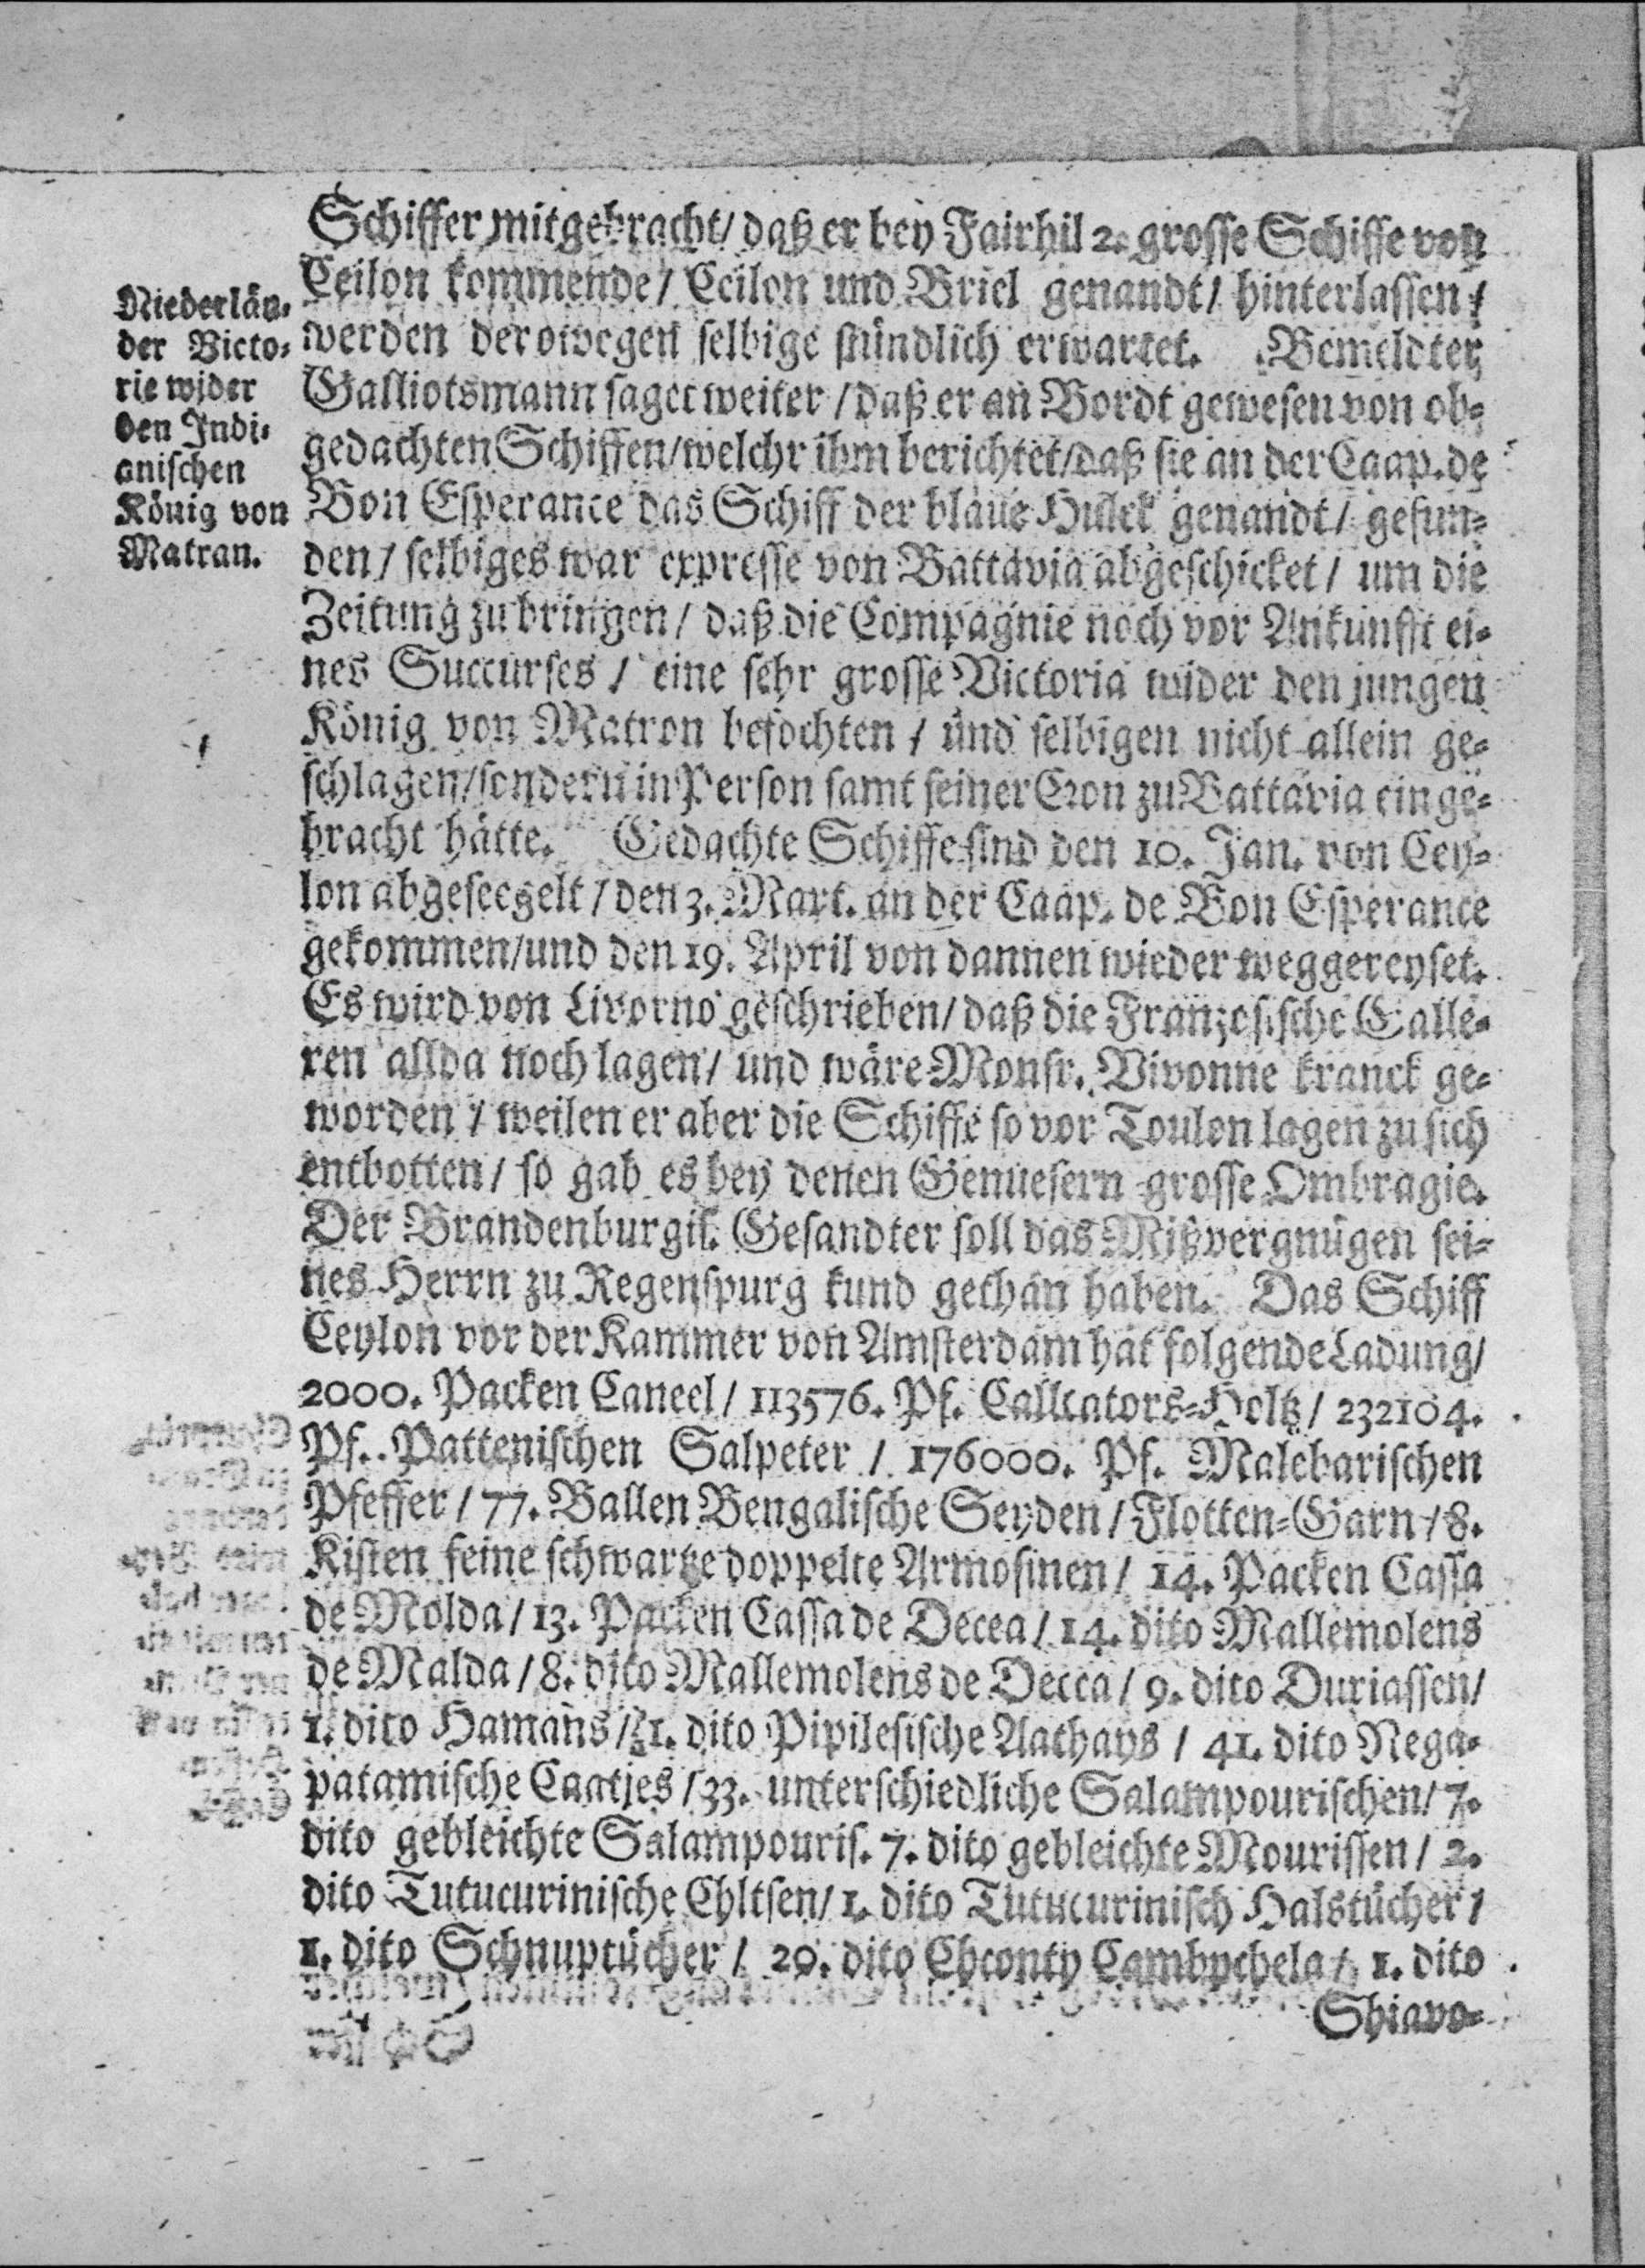 Schiffer mitgebracht/ daß er bey Fairhil 2. grosse Schiffe von
Ceilon kommende/ Ceilon und Briel genandt/ hinterlassen/
werden derowegen selbige stündlich erwartet. Bemeldter
Galliotsmann saget weiter/ daß er an Bordt gewesen von ob-
gedachten Schiffen/welchr ihm berichtet/daß sie an der Caap. de
Bon Esperance das Schiff der blaue Hulck genandt/ gefun-
den/ selbiges war expresse von Battavia abgeschicket/ um die
Zeitung zu bringen/ daß die Compagnie noch vor Ankunfft ei-
nes Succurses/ eine sehr grosse Victoria wider den jungen
König von Matron befochten/ und selbigen nicht allein ge-
schlagen/sondern in Person samt seiner Cron zu Battavia einge-
bracht hätte. Gedachte Schiffe sind den 10. Jan. von Cey-
lon abgeseegelt/ den 3. Mart. an der Caap. de Bon Esperance
gekommen/und den 19. April von dannen wieder weggereyset.
Es wird von Livorno geschrieben/ daß die Franzosische Galle-
ren allda noch lagen/ und wäre Monsr. Vivonne kranck ge-
worden/ weilen er aber die Schiffe so vor Toulon lagen zu sich
entbotten/ so gab es bey denen Genuesern grosse Ombragie.
Der Brandenburgis. Gesandter soll das Mißvergnügen sei-
nes Herrn zu Regenspurg kund gethan haben. Das Schiff
Ceylon vor der Kammer von Amsterdam hat folgende Ladung/
2000. Packen Caneel/ 113576. Pf. Callcators-Holtz/ 232104.
Pf. Pattenischen Salpeter/ 176000. Pf. Malebarischen
Pfeffer/ 77. Ballen Bengalische Seyden/ Flotten-Garn/ 8.
Kisten feine schwartze doppelte Armosinen/ 14. Packen Cassa
de Molda/ 13. Packen Cassa de Decea/ 14. dito Mallemolens
de Malda/ 8. dito Mallemolens de Decca/ 9. dito Duriassen/
1. dito Hamans/ 1. dito Pipilesische Aathays/ 41. dito Nega-
patamische Caatjes/ 33. unterschiedliche Salampourischen/ 7.
dito gebleichte Salampouris. 7. dito gebleichte Mourissen/ 2.
dito Tutucurinische Chltsen/ 1. dito Tutucurinisch Halstücher/
1. dito Schnuptücher/ 20. dito Chconty 1. dito
Shiavo-
Niederlän-
der Victo-
rie wider
den Indi-
anischen
König von
Matran.